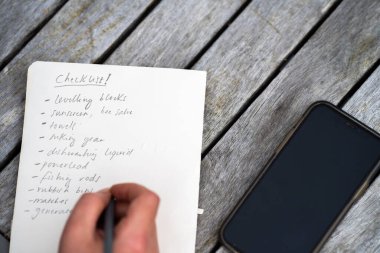 Checklist!
- levelling blocks
- sunscreen, bee
- towels
- gear
- dishwashing liquid
- powerlead
- fishing rods
- rubbish
- matches